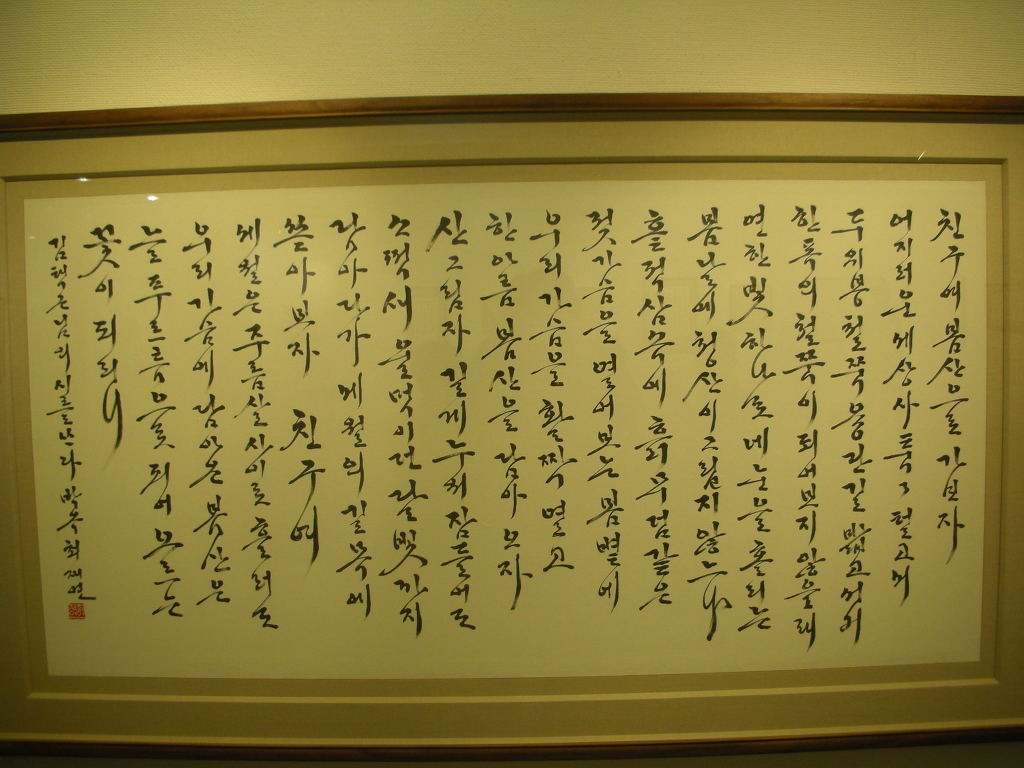 친구여 봄산으로 가보자
어지러운 세상사 툭툭 털고서
두위봉 철쭉 융단길 밟고 서서
한폭의 철쭉이 되어보지 않을래
연한 빛 하나로도 네 눈을 홀리는
봄날에 청산이 그립지 않느냐
흘적삼 목에 흙무덤 같은
젖가슴을 열어보는 봄볕에
우리 가슴을 활짝 열고
한아름 봄산을 담아 오자
산그림자 길게 누워 잠들어도
소쩍새 울먹이던 달빛까지
담아다가 세월의 길목에
쏟아 보자 친구여
세월은 주름살 사이로 흘러도
우리 가슴에 담아온 봄산은
늘 푸르름으로 되어 물든
꽃이 되리니
김택근님의 시를 쓰다 박옥희